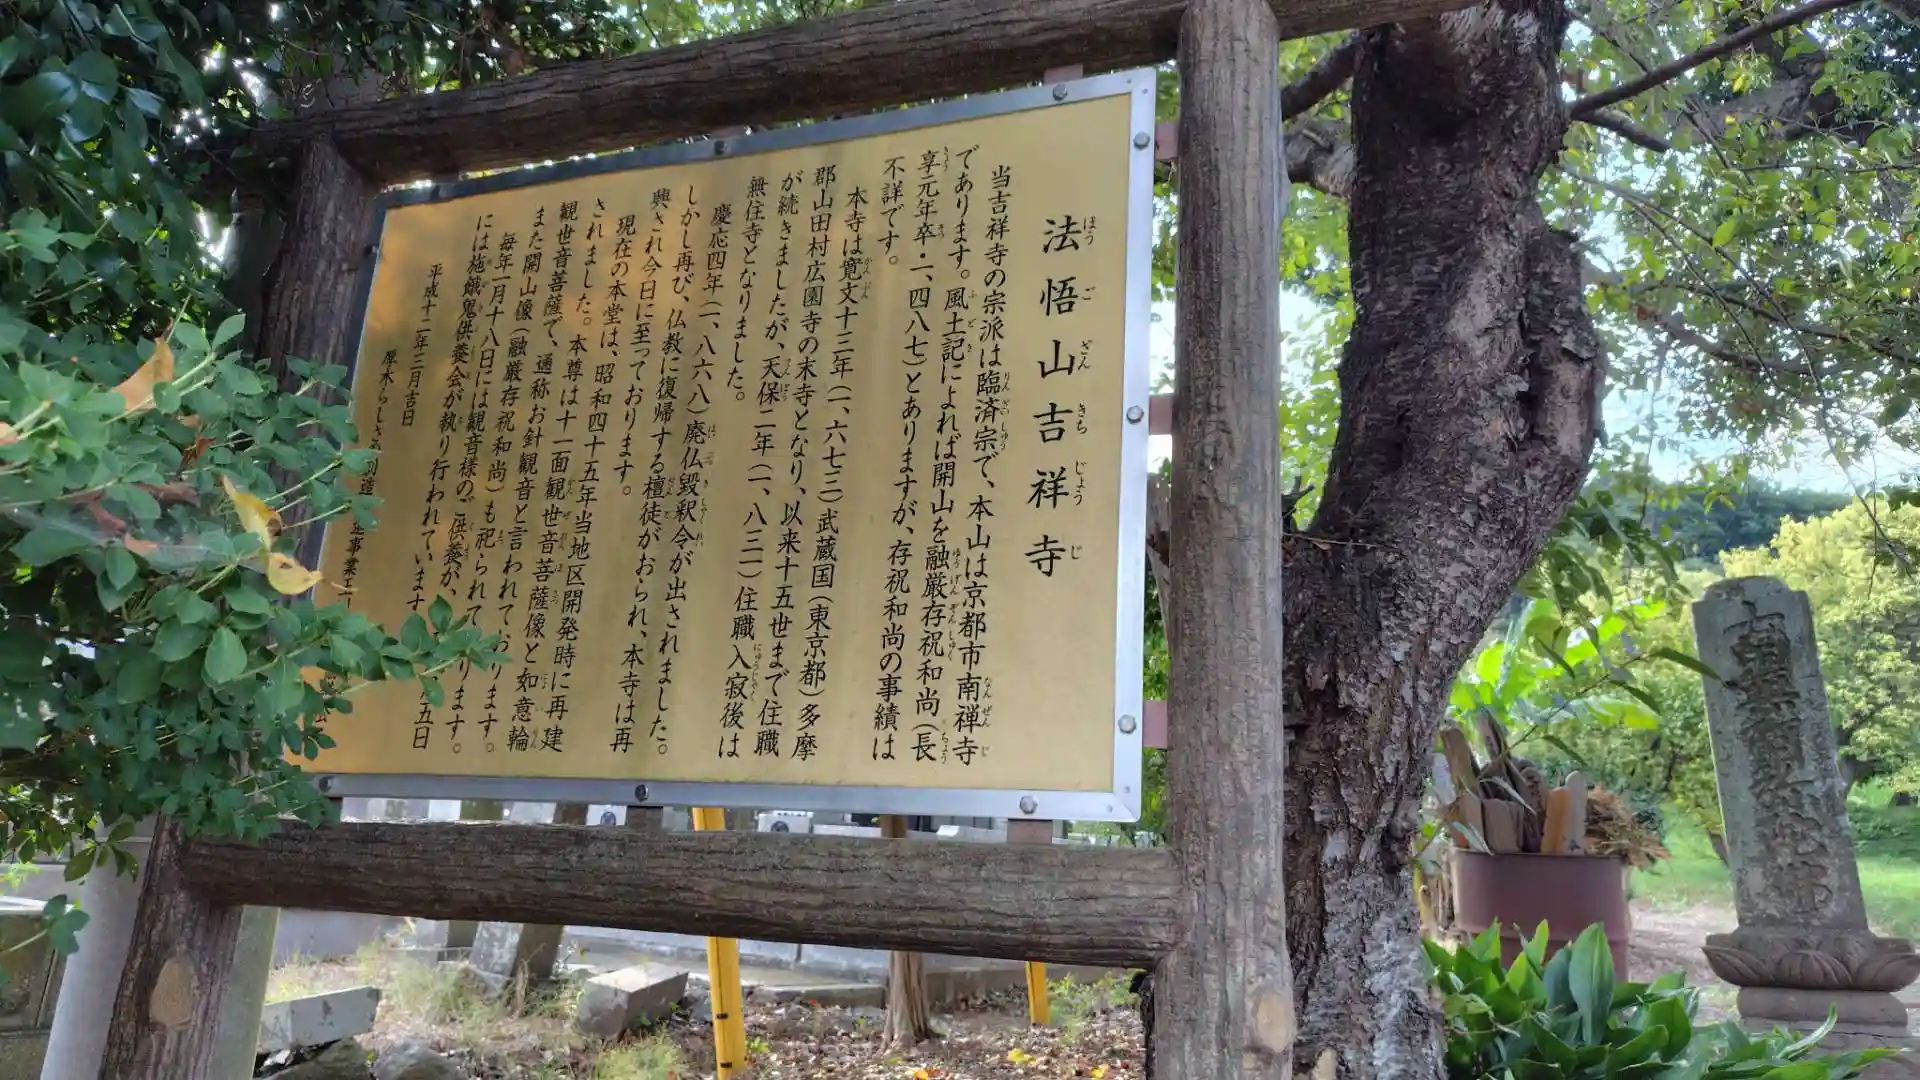 法悟山吉祥寺
ほうござんきちじょうじ
当吉祥寺の宗派は臨済宗で、本山は京都市南禅寺
であります。風土記によれば開山を融厳存祝和尚（長
享元年卒・一、四八七）とありますが、存祝和尚の事績は
不詳です。
本寺は寛文十三年（一、六七三）武蔵国（東京都）多摩
郡山田村広園寺の末寺となり、以来十五世まで住職
が続きましたが、天保二年（一、八三一）住職入寂後は
無住寺となりました。
慶応四年（一、八六八）廃仏毀釈令が出されました。
しかし再び、仏教に復帰する檀徒がおられ、本寺は再
興され今日に至っております。
現在の本堂は、昭和四十五年当地区開発時に再建
されました。本尊は十一面観世音菩薩像と如意輪
観世音菩薩で、通称お針観音と言われております。
また開山像（融厳存祝和尚）も祀られて ります。
毎年一月十八日には観音様のご供養が、 五日
には施餓鬼供養会が執り行われています
平成十二年三月吉日
厚木らしさ 創造 事業